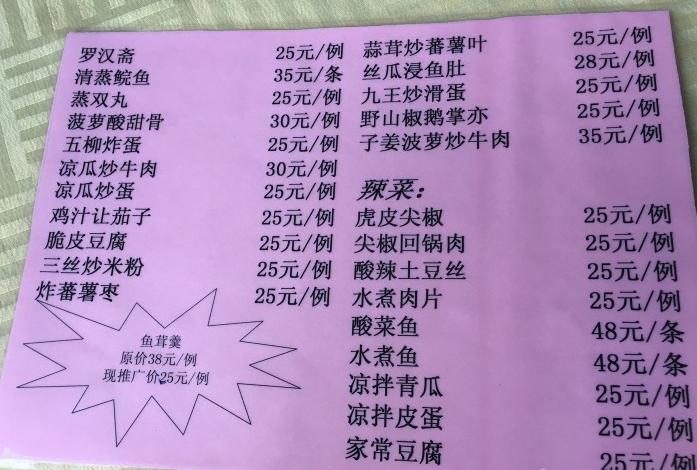 罗汉斋 25元/例
清蒸鲩鱼 35元/条
蒸双丸 25元/例
菠萝酸甜骨 30元/例
五柳炸蛋 25元/例
凉瓜炒牛肉 30元/例
凉瓜炒蛋 25元/例
鸡汁让茄子 25元/例
脆皮豆腐 25元/例
三丝炒米粉 25元/例
炸蕃薯枣 25元/例
鱼茸羹
原价38元/例
现推广价25元/例
蒜茸炒蕃薯叶 25元/例
丝瓜浸鱼肚 28元/例
九王炒滑蛋 25元/例
野山椒鹅掌亦 25元/例
子姜菠萝炒牛肉 35元/例
辣菜：
虎皮尖椒 25元/例
尖椒回锅肉 25元/例
酸辣土豆丝 25元/例
水煮肉片 25元/例
酸菜鱼 48元/条
水煮鱼 48元/条
凉拌青瓜 25元/例
凉拌皮蛋 25元/例
家常豆腐 25元/例